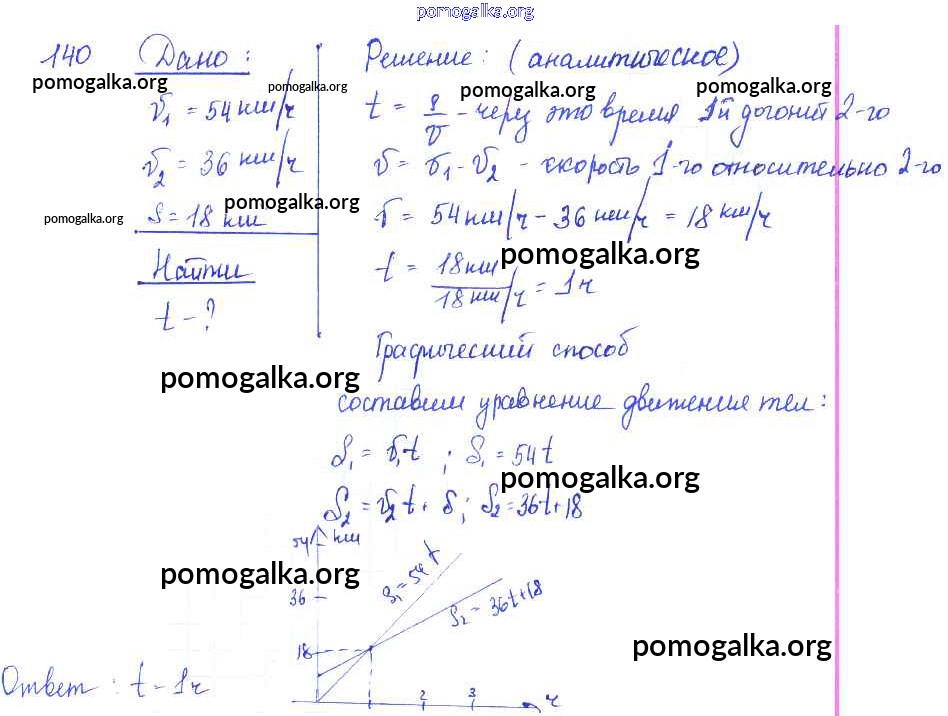 pomogalka.org
140 Дано: Решение: (аналитическое)
pomogalka.org pomogalka.org pomogalka.org pomogalka.org
v₁ = 54 км/ч t = s/v - через это время 1й догонит 2-го
v₂ = 36 км/ч v = v₁ - v₂ - скорость 1-го относительно 2-го
pomogalka.org
pomogalka.org
s = 18 км v = 54 км/ч - 36 км/ч = 18 км/ч
pomogalka.org
Найти t = 18 км / 18 км/ч = 1ч
t - ?
Графический способ
pomogalka.org
составим уравнение движения тел:
S₁ = v₁t ; S₁ = 54t
pomogalka.org
S₂ = v₂t + S ; S₂ = 36t + 18
54 км
pomogalka.org
S₁ = 54t
36
S₂ = 36t + 18
pomogalka.org
18
Ответ: t - 1ч
2 3 ч